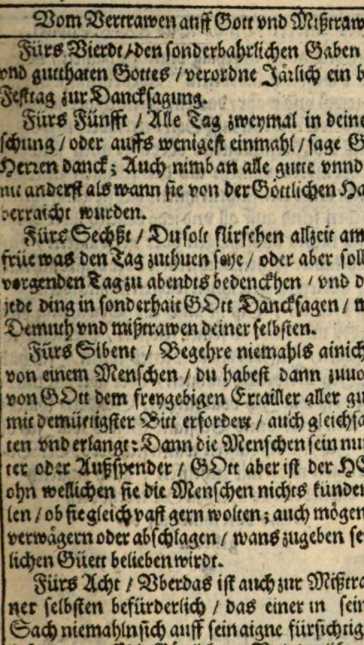 Vom Vertrawen auff Gott vnd Mißtraw
Fürs Vierdt / den sonderbahrlichen Gaben
vnd gutthaten Gottes / verordne Järlich ein b
Festtag zur Dancksagung.
Fürs Fünfft / Alle Tag zweymal in deine
schung / oder auffs wenigest einmahl / sage G
Herren danck; Auch nimb an alle gutte vnnd
nit anderst als wann sie von der Göttlichen Ha
verraicht wurden.
Fürs Sechßt / Du solt fürsehen allzeit am
früe was den Tag zuthuen seye / oder aber soll
vorgenden Tag zu abendts bedenckhen / vnd d
jede ding in sonderhait GOtt Dancksagen / m
Demuth vnd mißtrawen deiner selbsten.
Fürs Sibent / Begehre niemahls ainich
von einem Menschen / du habest dann zuuo
von GOtt dem freygebigen Ertailler aller gu
mit demüetigster Bitt erfordert / auch gleichsa
ten vnd erlangt: Dann die Menschen sein nu
ter oder Außspender / GOtt aber ist der HE
ohn wellichen sie die Menschen nichts künden
len / ob sie gleich vast gern wolten; auch mögen
verwägern oder abschlagen / wans zugeben se
lichen Güett belieben wirdt.
Fürs Acht / Vberdas ist auch zur Mißtra
ner selbsten befürderlich / das einer in sein
Sach niemahln sich auff sein aigne fürsichtig